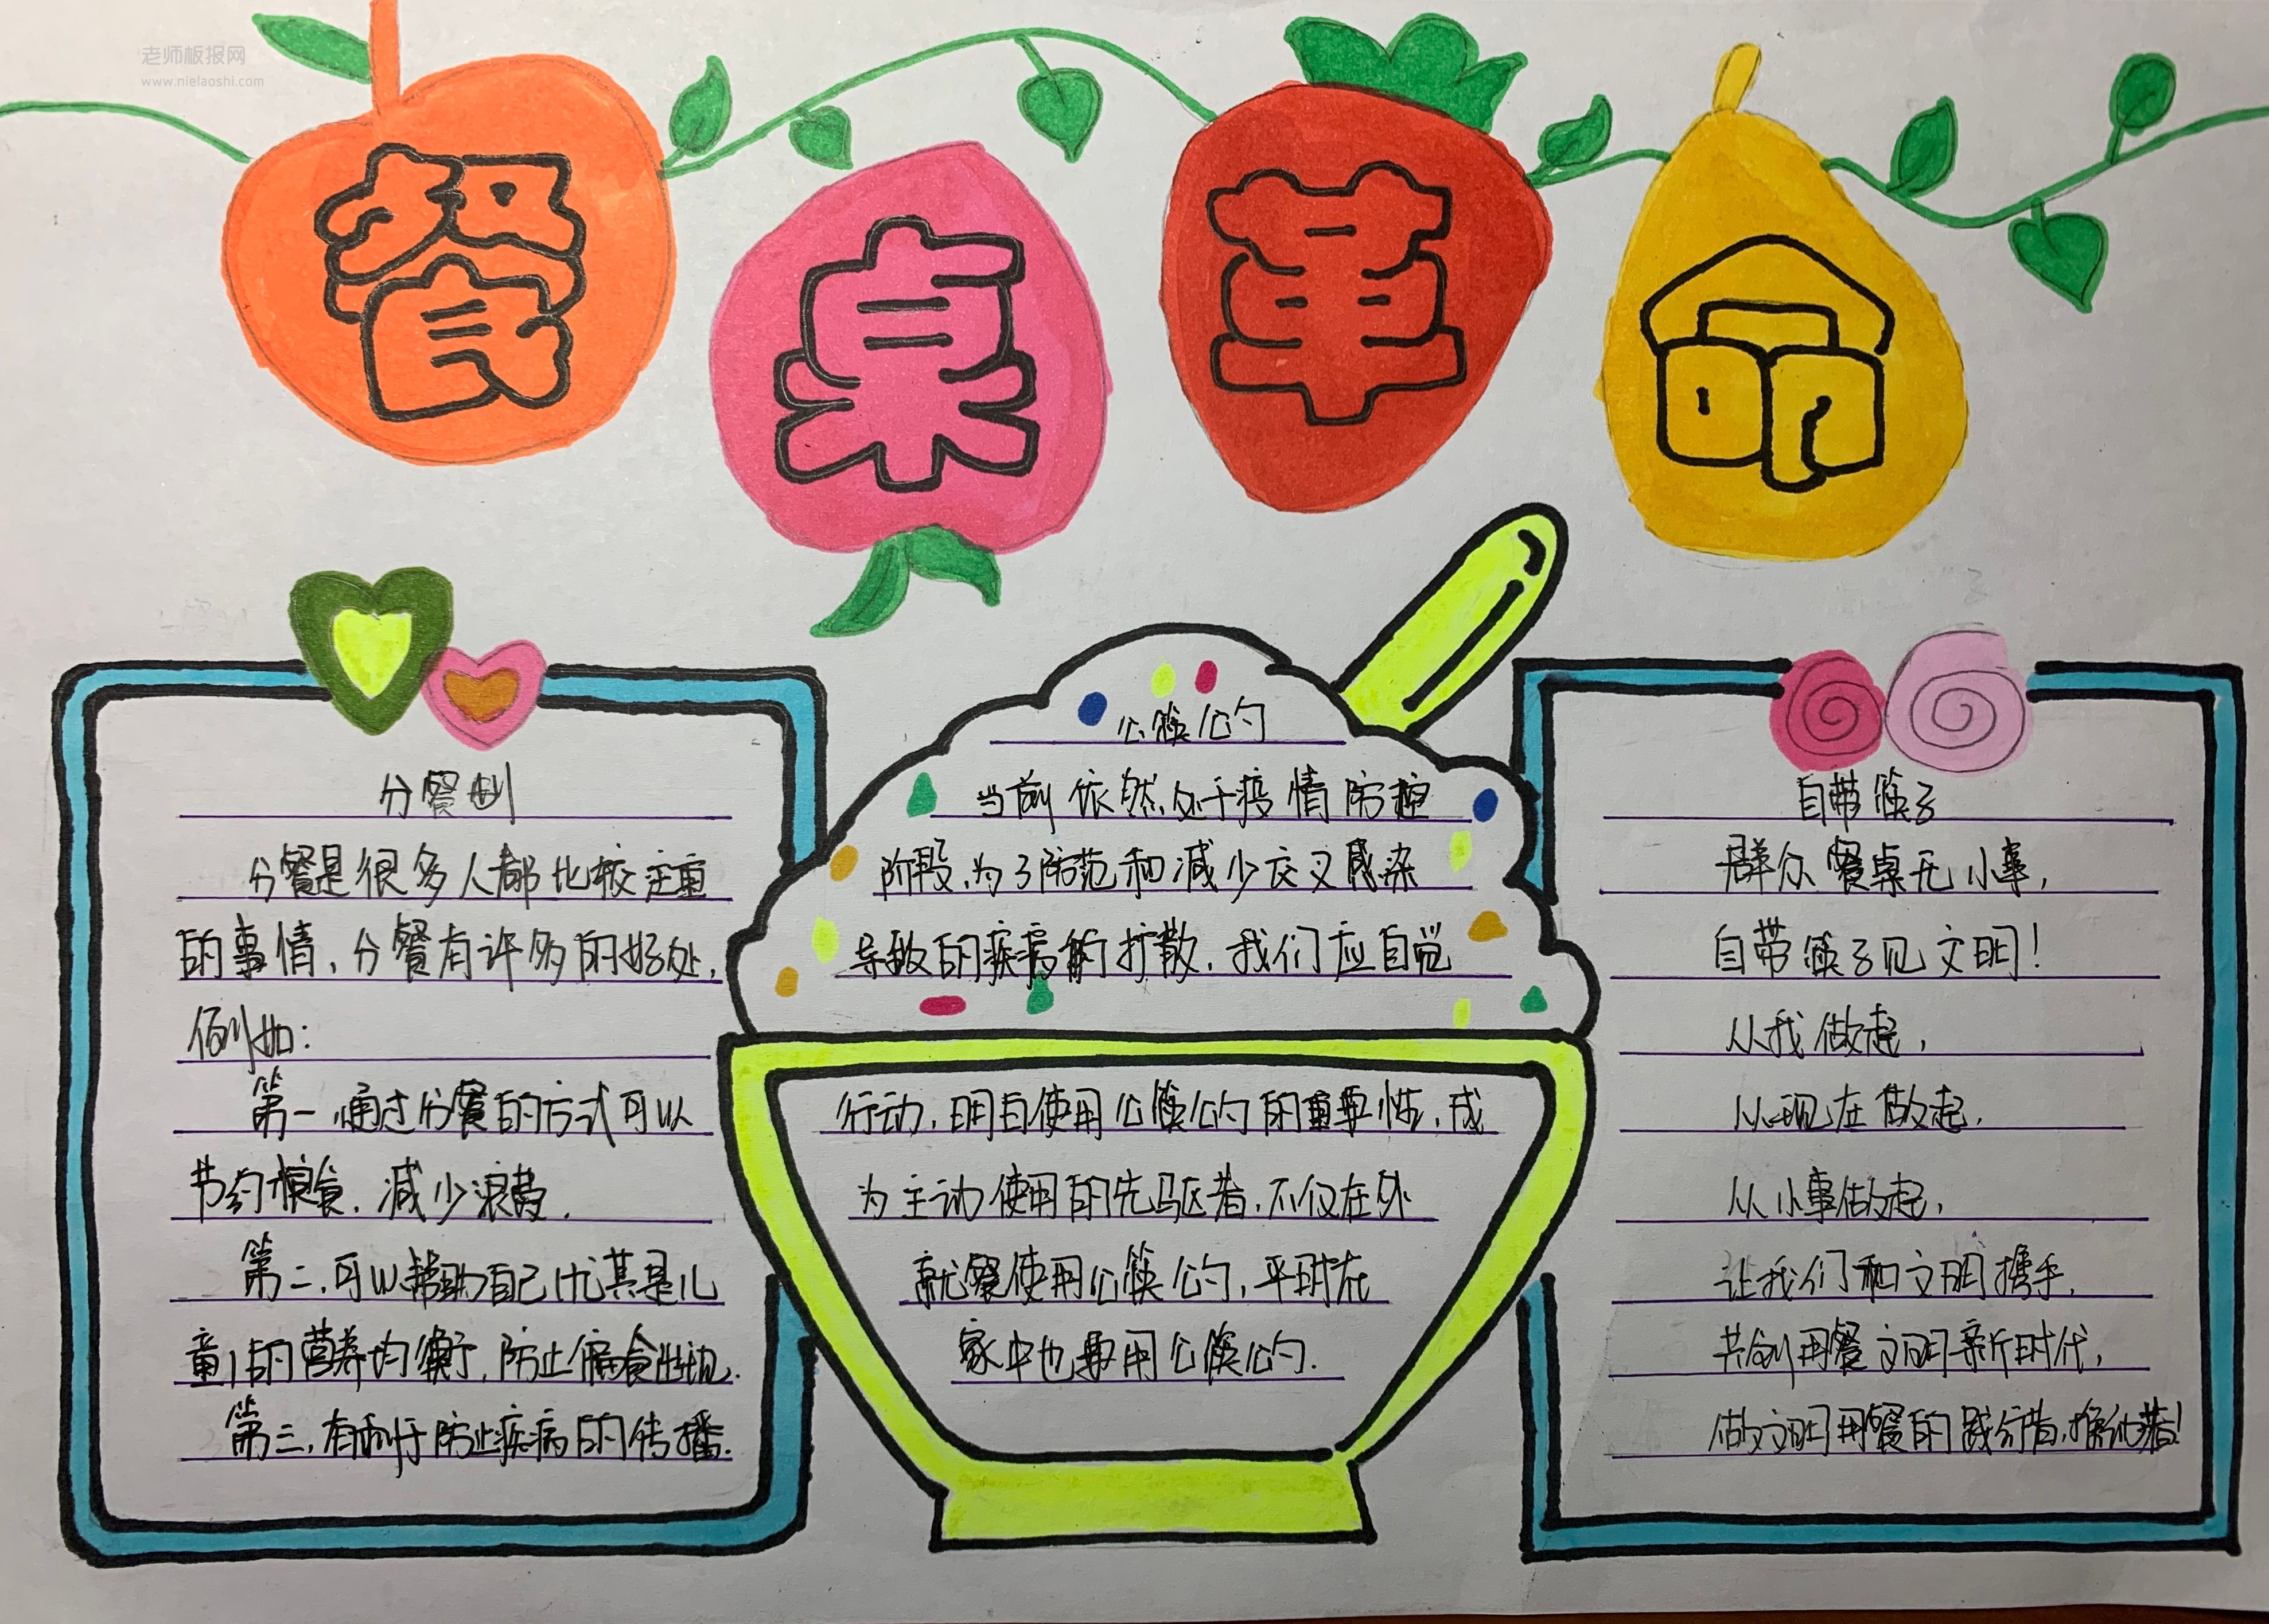 老师板报网
www.nielaoshi.com
餐桌革命
分餐制
分餐是很多人都比较注重
的事情,分餐有许多的好处,
例如:
第一,通过分餐的方式可以
节约粮食,减少浪费.
第二,可以帮助自己(尤其是儿
童)的营养均衡,防止偏食
第三,有利于防止疾病的传播.
公筷公勺
当前依然处于疫情防控
阶段,为了防范和减少交叉感染
导致的疾病的扩散,我们应自觉
行动,明白使用公筷公勺的重要性,成
为主动使用的先驱者,不仅在外
就餐使用公筷公勺,平时在
家中也要用公筷公勺.
自带筷子
群众餐桌无小事,
自带筷子见文明!
从我做起,
从现在做起,
从小事做起,
让我们和文明携手,
共创用餐文明新时代,
做文明用餐的践行者,推动者!